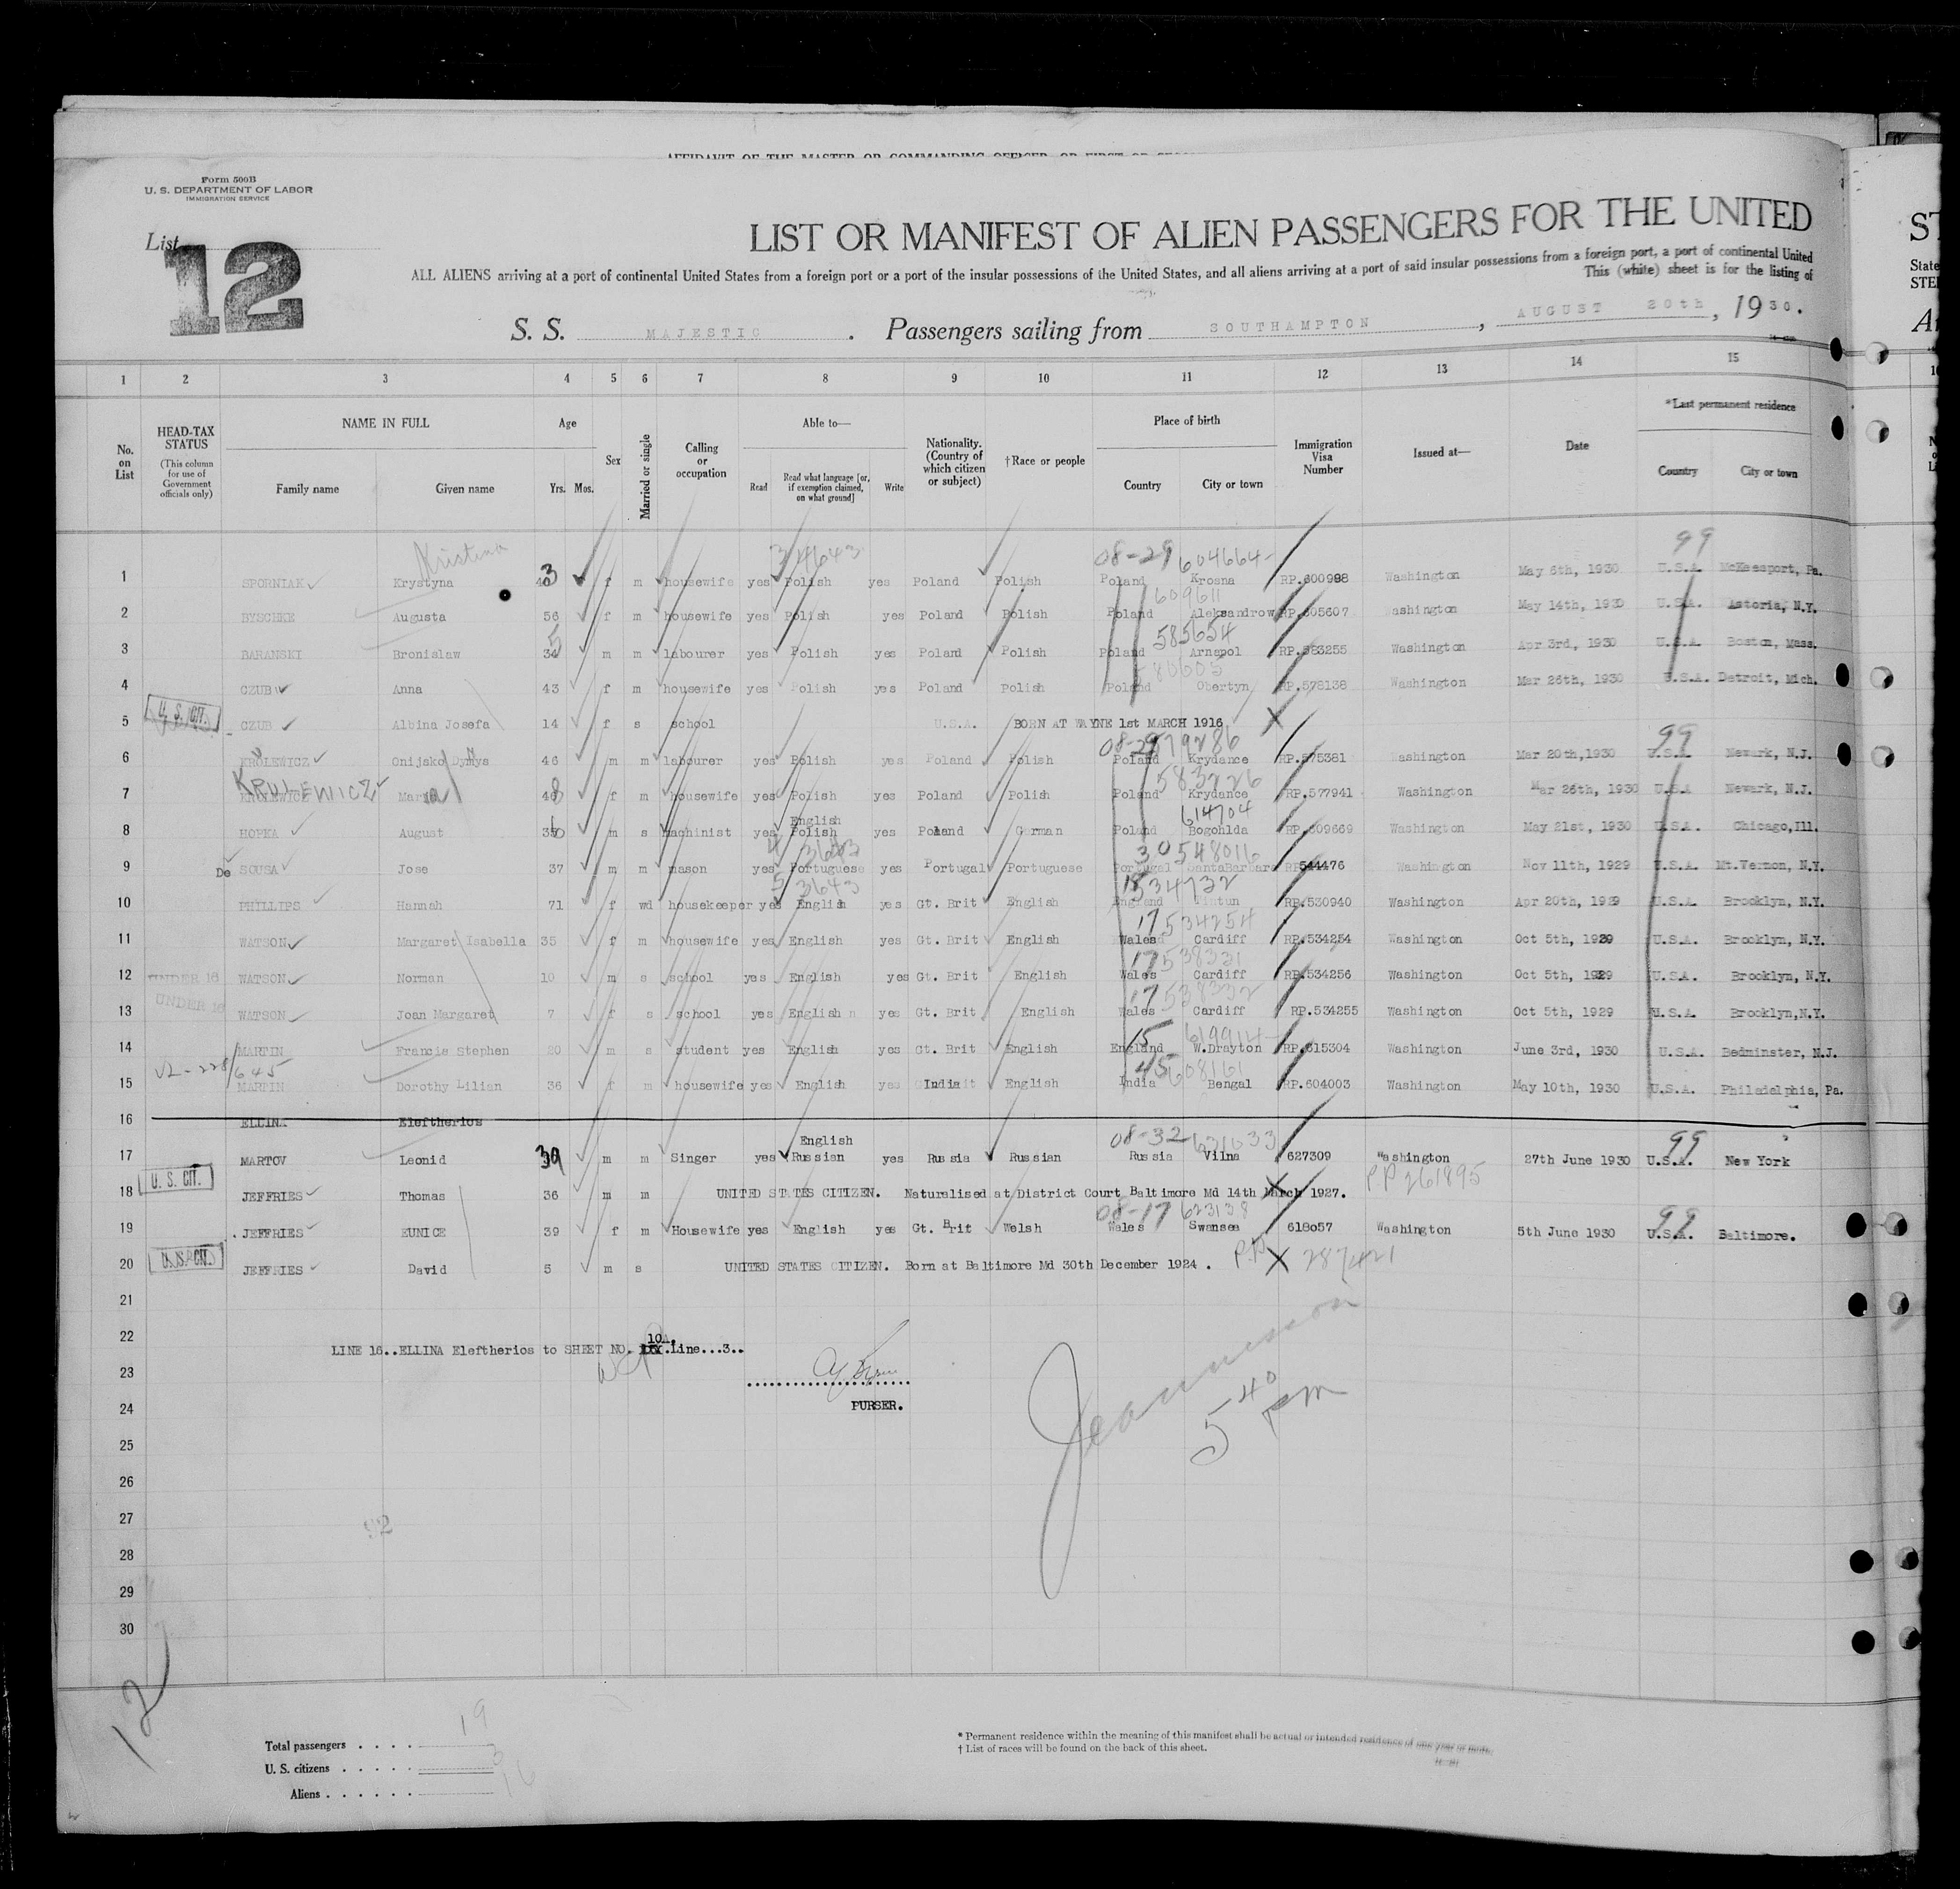 AFFIDAVIT OF THE MASTER OR COMMANDING OFFICER, OR FIRST OR
Form 500B
U. S. DEPARTMENT OF LABOR
IMMIGRATION SERVICE
List 12
LIST OR MANIFEST OF ALIEN PASSENGERS FOR THE UNITED
ST
ALL ALIENS arriving at a port of continental United States from a foreign port or a port of the insular possessions of the United States, and all aliens arriving at a port of said insular possessions from a foreign port, a port of continental United
State
This (white) sheet is for the listing of
STE
S. S. MAJESTIC . Passengers sailing from SOUTHAMPTON , AUGUST 20th , 1930.
1 2 3 4 5 6 7 8 9 10 11 12 13 14 15
No. on List HEAD-TAX STATUS (This column for use of Government officials only) NAME IN FULL Family name Given name Age Yrs. Mos. Sex Married or single Calling or occupation Able to— Read Read what language [or, if exemption claimed, on what ground] Write Nationality. (Country of which citizen or subject) †Race or people Place of birth Country City or town Immigration Visa Number Issued at— Date *Last permanent residence Country City or town
Kristina 34643 08-29 604664- 99
1 SPORNIAK Krystyna 43 f m housewife yes Polish yes Poland Polish Poland Krosna RP.600998 Washington May 6th, 1930 U.S.A. McKeesport, Pa.
609611
2 BYSCHKE Augusta 56 f m housewife yes Polish yes Poland Polish Poland Aleksandrow RP.605607 Washington May 14th, 1930 U.S.A. Astoria, N.Y.
585654
3 BARANSKI Bronislaw m m labourer yes Polish yes Poland Polish Poland Arnapol RP.583255 Washington Apr 3rd, 1930 U.S.A. Boston, Mass.
80605
4 CZUB Anna 43 f m housewife yes Polish yes Poland Polish Poland Obertyn RP.578138 Washington Mar 26th, 1930 U.S.A. Detroit, Mich.
U. S. CIT.
5 CZUB Albina Josefa 14 f s school U.S.A. BORN AT WAYNE 1st MARCH 1916
08-29 579286 99
6 KROLEWICZ Onijsko Dymys 46 m m labourer yes Polish yes Poland Polish Poland Krydance RP.575381 Washington Mar 20th,1930 U.S.A Newark, N.J.
KRULEWICZ 583226
7 KROLEWICZ Maria 48 f m housewife yes Polish yes Poland Polish Poland Krydance RP.577941 Washington Mar 26th, 1930 U.S.A Newark, N.J.
English 614704
8 HOPKA August m s machinist yes Polish yes Poland German Poland Bogohlda RP.609669 Washington May 21st, 1930 U.S.A. Chicago,Ill.
30 548016
9 De SOUSA Jose 37 m m mason yes Portuguese yes Portugal Portuguese Portugal SantaBarbara RP544476 Washington Nov 11th, 1929 U.S.A. Mt.Vernon, N.Y.
5 3643 15 534732
10 PHILLIPS Hannah 71 f wd housekeeper yes English yes Gt. Brit English England RP.530940 Washington Apr 20th, 1929 U.S.A. Brooklyn, N.Y.
17 534254
11 WATSON Margaret Isabella 35 f m housewife yes English yes Gt. Brit English Wales Cardiff RP.534254 Washington Oct 5th, 1929 U.S.A. Brooklyn, N.Y.
17 538331
12 UNDER 16 WATSON Norman 10 m s school yes English yes Gt. Brit English Wales Cardiff RP.534256 Washington Oct 5th, 1929 U.S.A. Brooklyn, N.Y.
17 538332
13 UNDER 16 WATSON Joan Margaret 7 f s school yes English yes Gt. Brit English Wales Cardiff RP.534255 Washington Oct 5th, 1929 U.S.A. Brooklyn,N.Y.
15 619914-
14 MARTIN Francis Stephen 20 m s student yes English yes Gt. Brit English England W.Drayton RP.615304 Washington June 3rd, 1930 U.S.A. Bedminster, N.J.
V2-228/645 45 608161
15 MARTIN Dorothy Lilian 36 f m housewife yes English yes India English India Bengal RP.604003 Washington May 10th, 1930 U.S.A. Philadelphia, Pa.
16 ELLINA Eleftherios
English 08-32 631633 99
17 MARTOV Leonid 39 m m Singer yes Russian yes Russia Russian Russia Vilna 627309 Washington 27th June 1930 U.S.A. New York
U. S. CIT. PP 261895
18 JEFFRIES Thomas 36 m m UNITED STATES CITIZEN. Naturalised at District Court Baltimore Md 14th March 1927.
08-17 623138 99
19 JEFFRIES EUNICE 39 f m Housewife yes English yes Gt. Brit Welsh Wales Swansea 618057 Washington 5th June 1930 U.S.A. Baltimore.
U. S. CIT.
20 JEFFRIES David 5 m s UNITED STATES CITIZEN. Born at Baltimore Md 30th December 1924 . PP 287421
21
22
LINE 16..ELLINA Eleftherios to SHEET NO. 10A. Line...3..
23
24
PURSER.
5 40 pm
25
26
27
92
28
29
30
12
Total passengers . . . . 19
U. S. citizens . . . . . 3
Aliens . . . . . . 16
* Permanent residence within the meaning of this manifest shall be actual or intended residence of one year or more.
† List of races will be found on the back of this sheet.